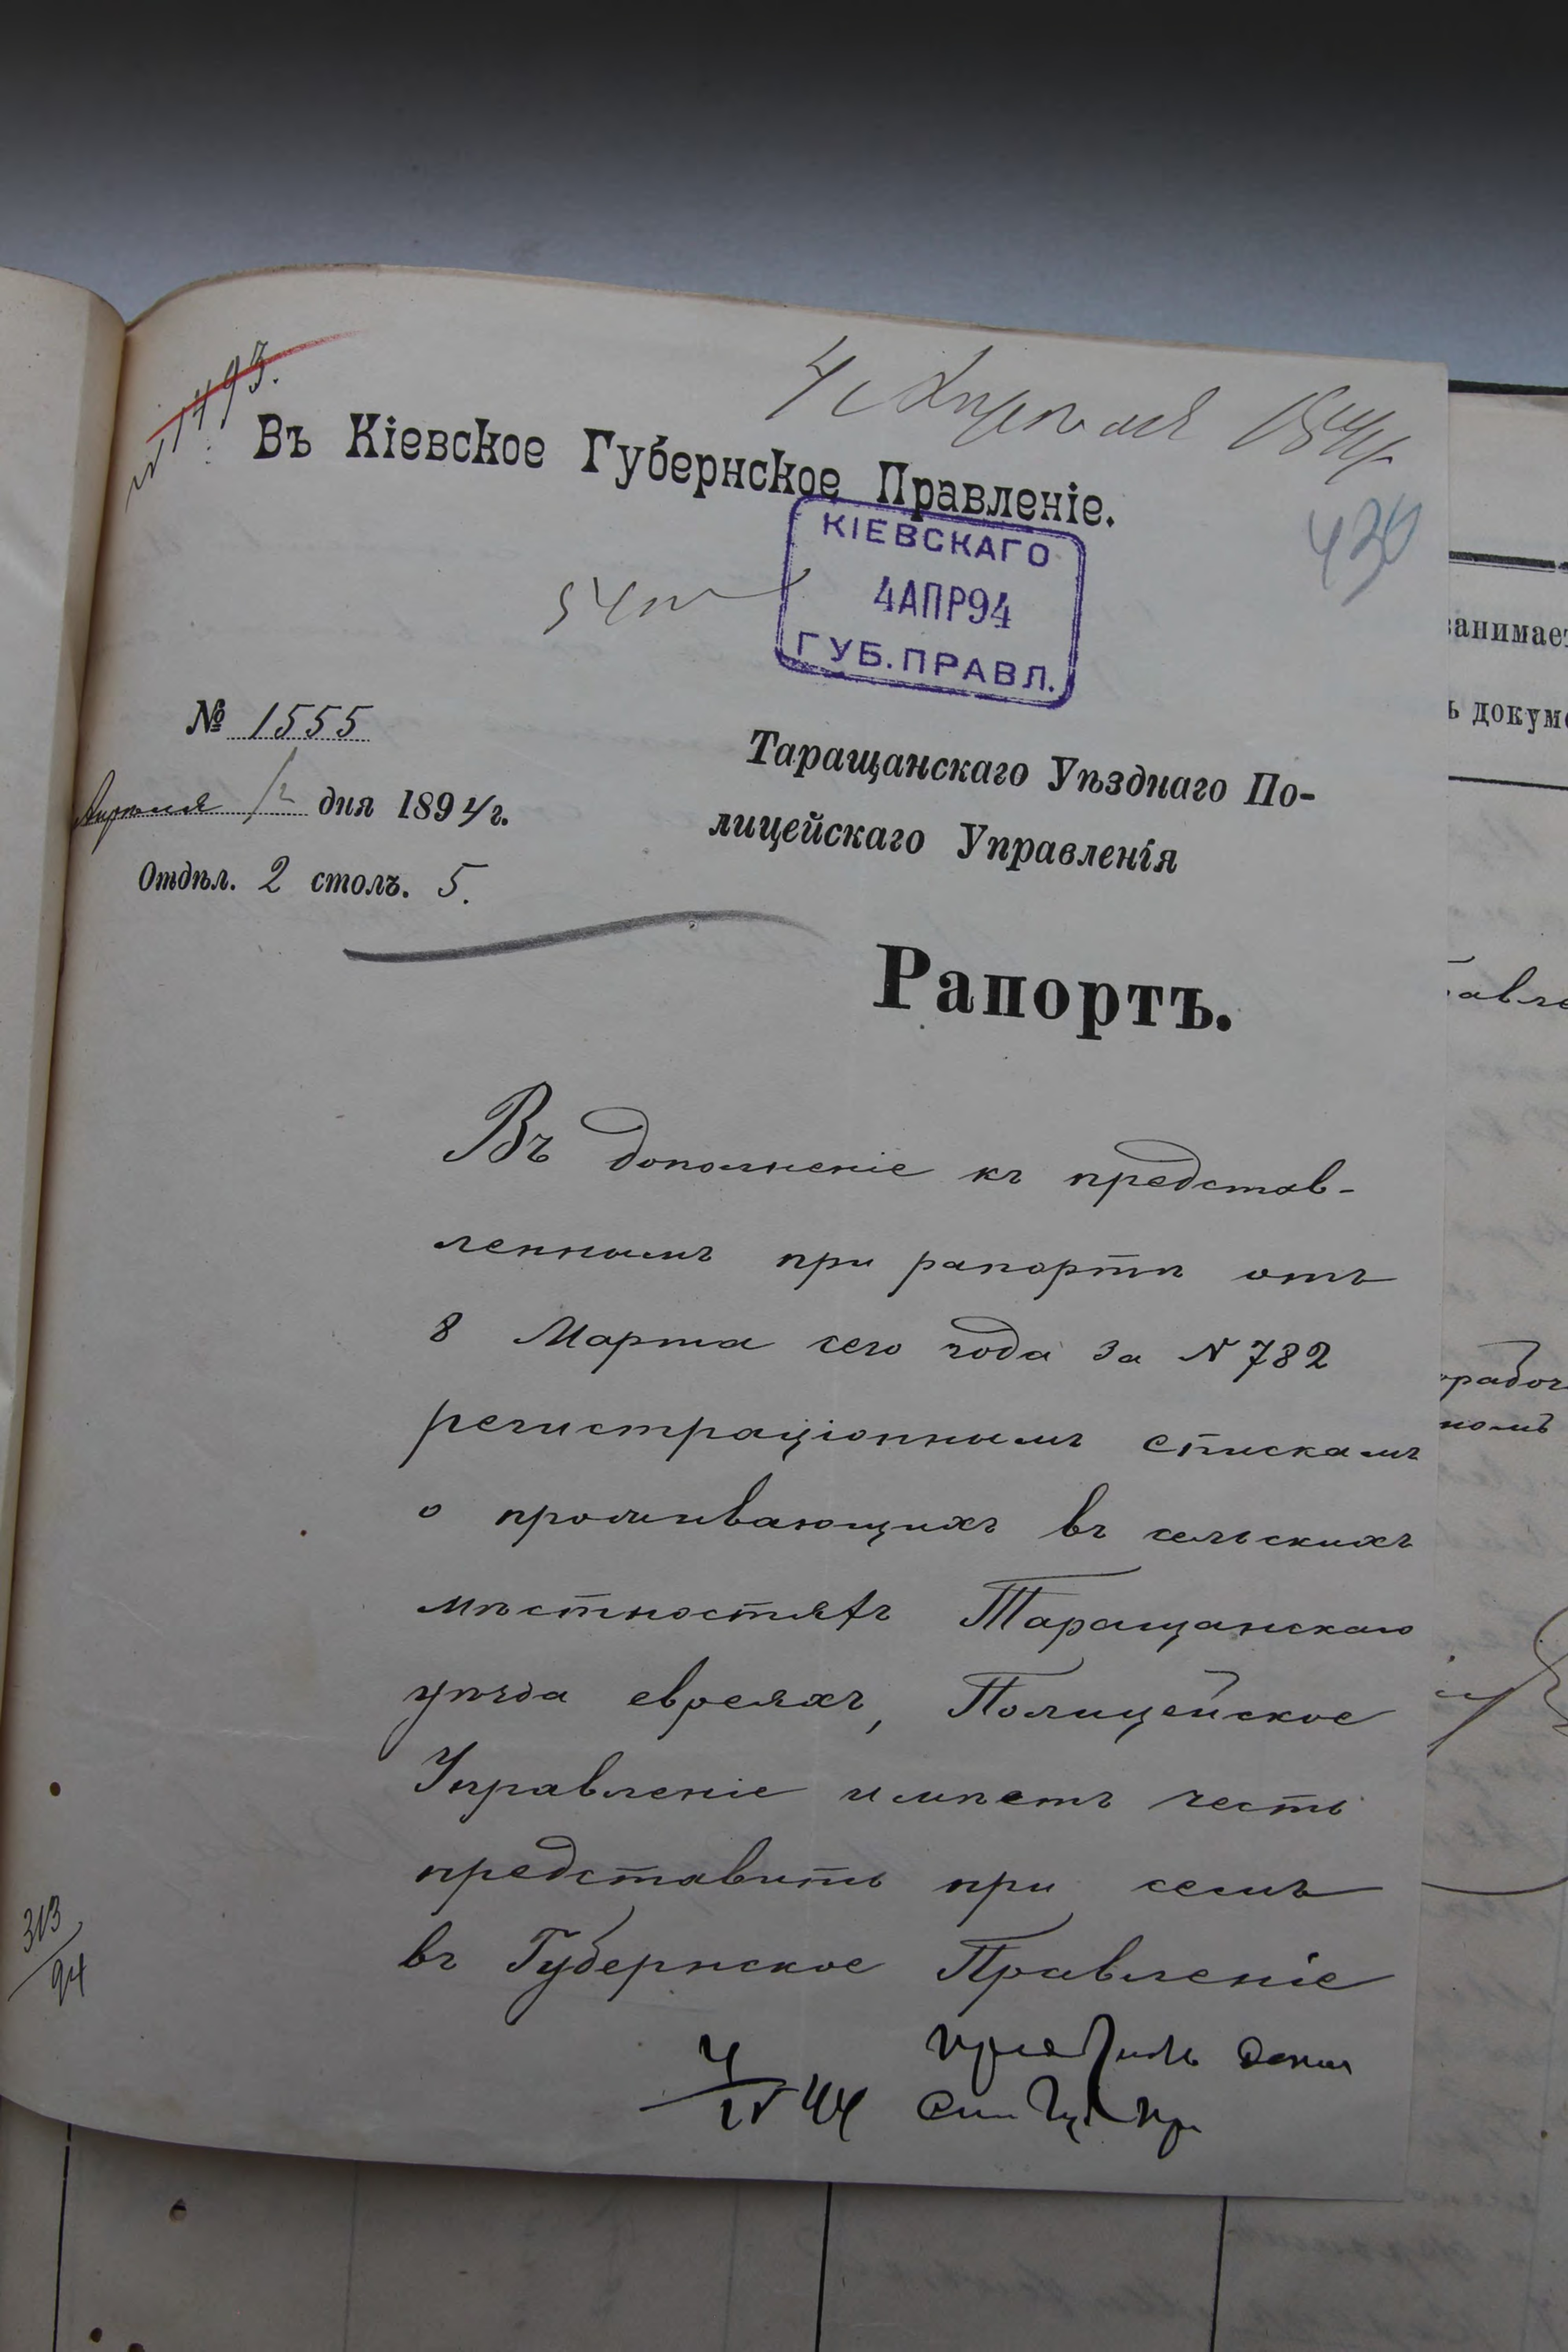 4 Апреля 1894
№ 1793.
Въ Кіевское Губернское Правленіе.
430
КІЕВСКАГО
4АПР94
ГУБ.ПРАВЛ.
№ 1555
Апреля 1/2 дня 1894г.
Отдѣл. 2 столъ. 5.
Таращанскаго Уѣзднаго По-
лицейскаго Управленія
Рапортъ.
Въ дополненіе къ представ-
леннымъ при рапортѣ отъ
8 Марта сего года за N 782
регистраціоннымъ спискамъ
о проживающихъ въ сельскихъ
мѣстностяхъ Таращанскаго
уѣзда евреяхъ, Полицейское
Управленіе имѣетъ честь
представить при семъ
въ Губернское Правленіе
4/IV 94
313/94
занимает
ъ докуме